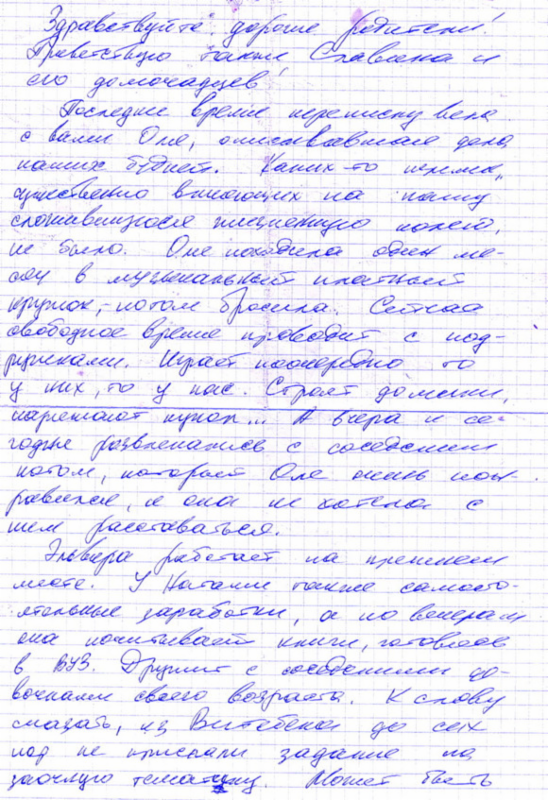 Здравствуйте дорогие родители!
Приветствую также Славика и
его домочадцев!
Последнее время переписку вела
с вами Оля, описывавшая дела
наших будней. Каких-то перемен,
существенно влияющих на нашу
сложившуюся жизненную колею,
не было. Оля походила один ме-
сяц в музыкальный платный
кружок, – потом бросила. Сейчас
свободное время проводит с под-
ружками. Играет поочередно то
у них, то у нас. Строят домики,
наряжают кукол... А вчера и се-
годня развлекались с соседским
котом, который Оле очень пон-
равился, и она не хотела с
ним расставаться.
Эльвира работает на прежнем
месте. У Натальи также самосто-
ятельные заработки, а по вечерам
она почитывает книги, готовясь
в ВУЗ. Дружит с соседскими де-
вочками своего возраста. К слову
сказать, из Витебска до сих
пор не прислали задание на
заочную тематику. Может быть